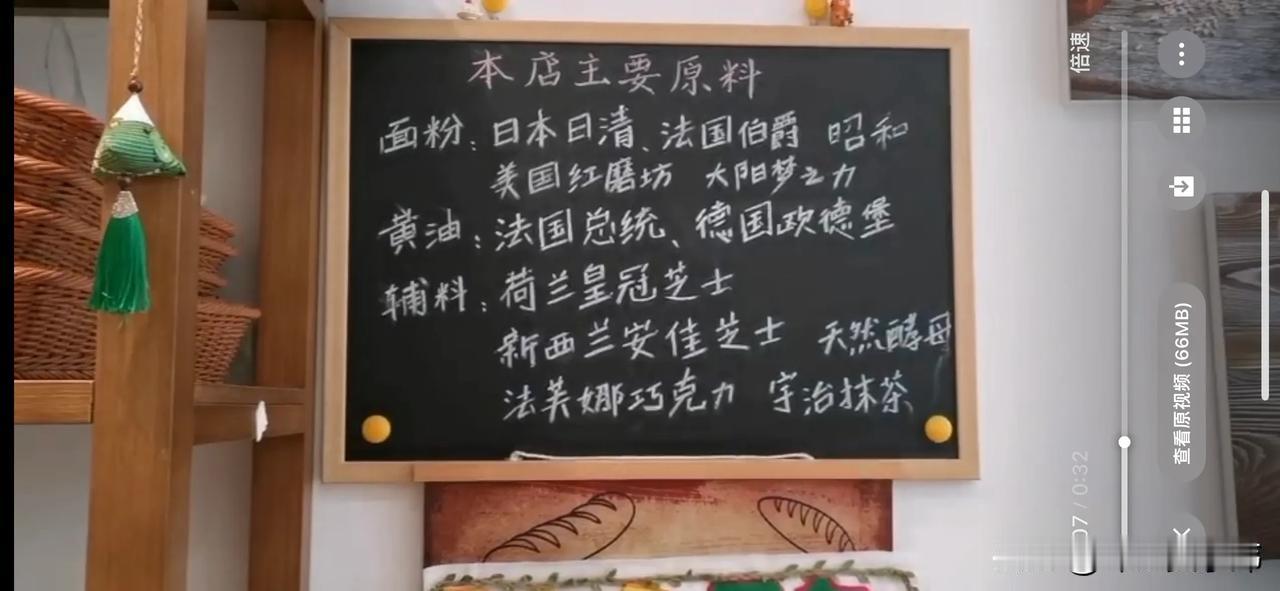 本店主要原料
面粉：日本日清、法国伯爵 昭和
美国红磨坊 大阳梦之力
黄油：法国总统、德国欧德堡
辅料：荷兰皇冠芝士
新西兰安佳芝士 天然酵母
法芙娜巧克力 宇治抹茶
倍速
查看原视频 (66MB)
07 / 0:32